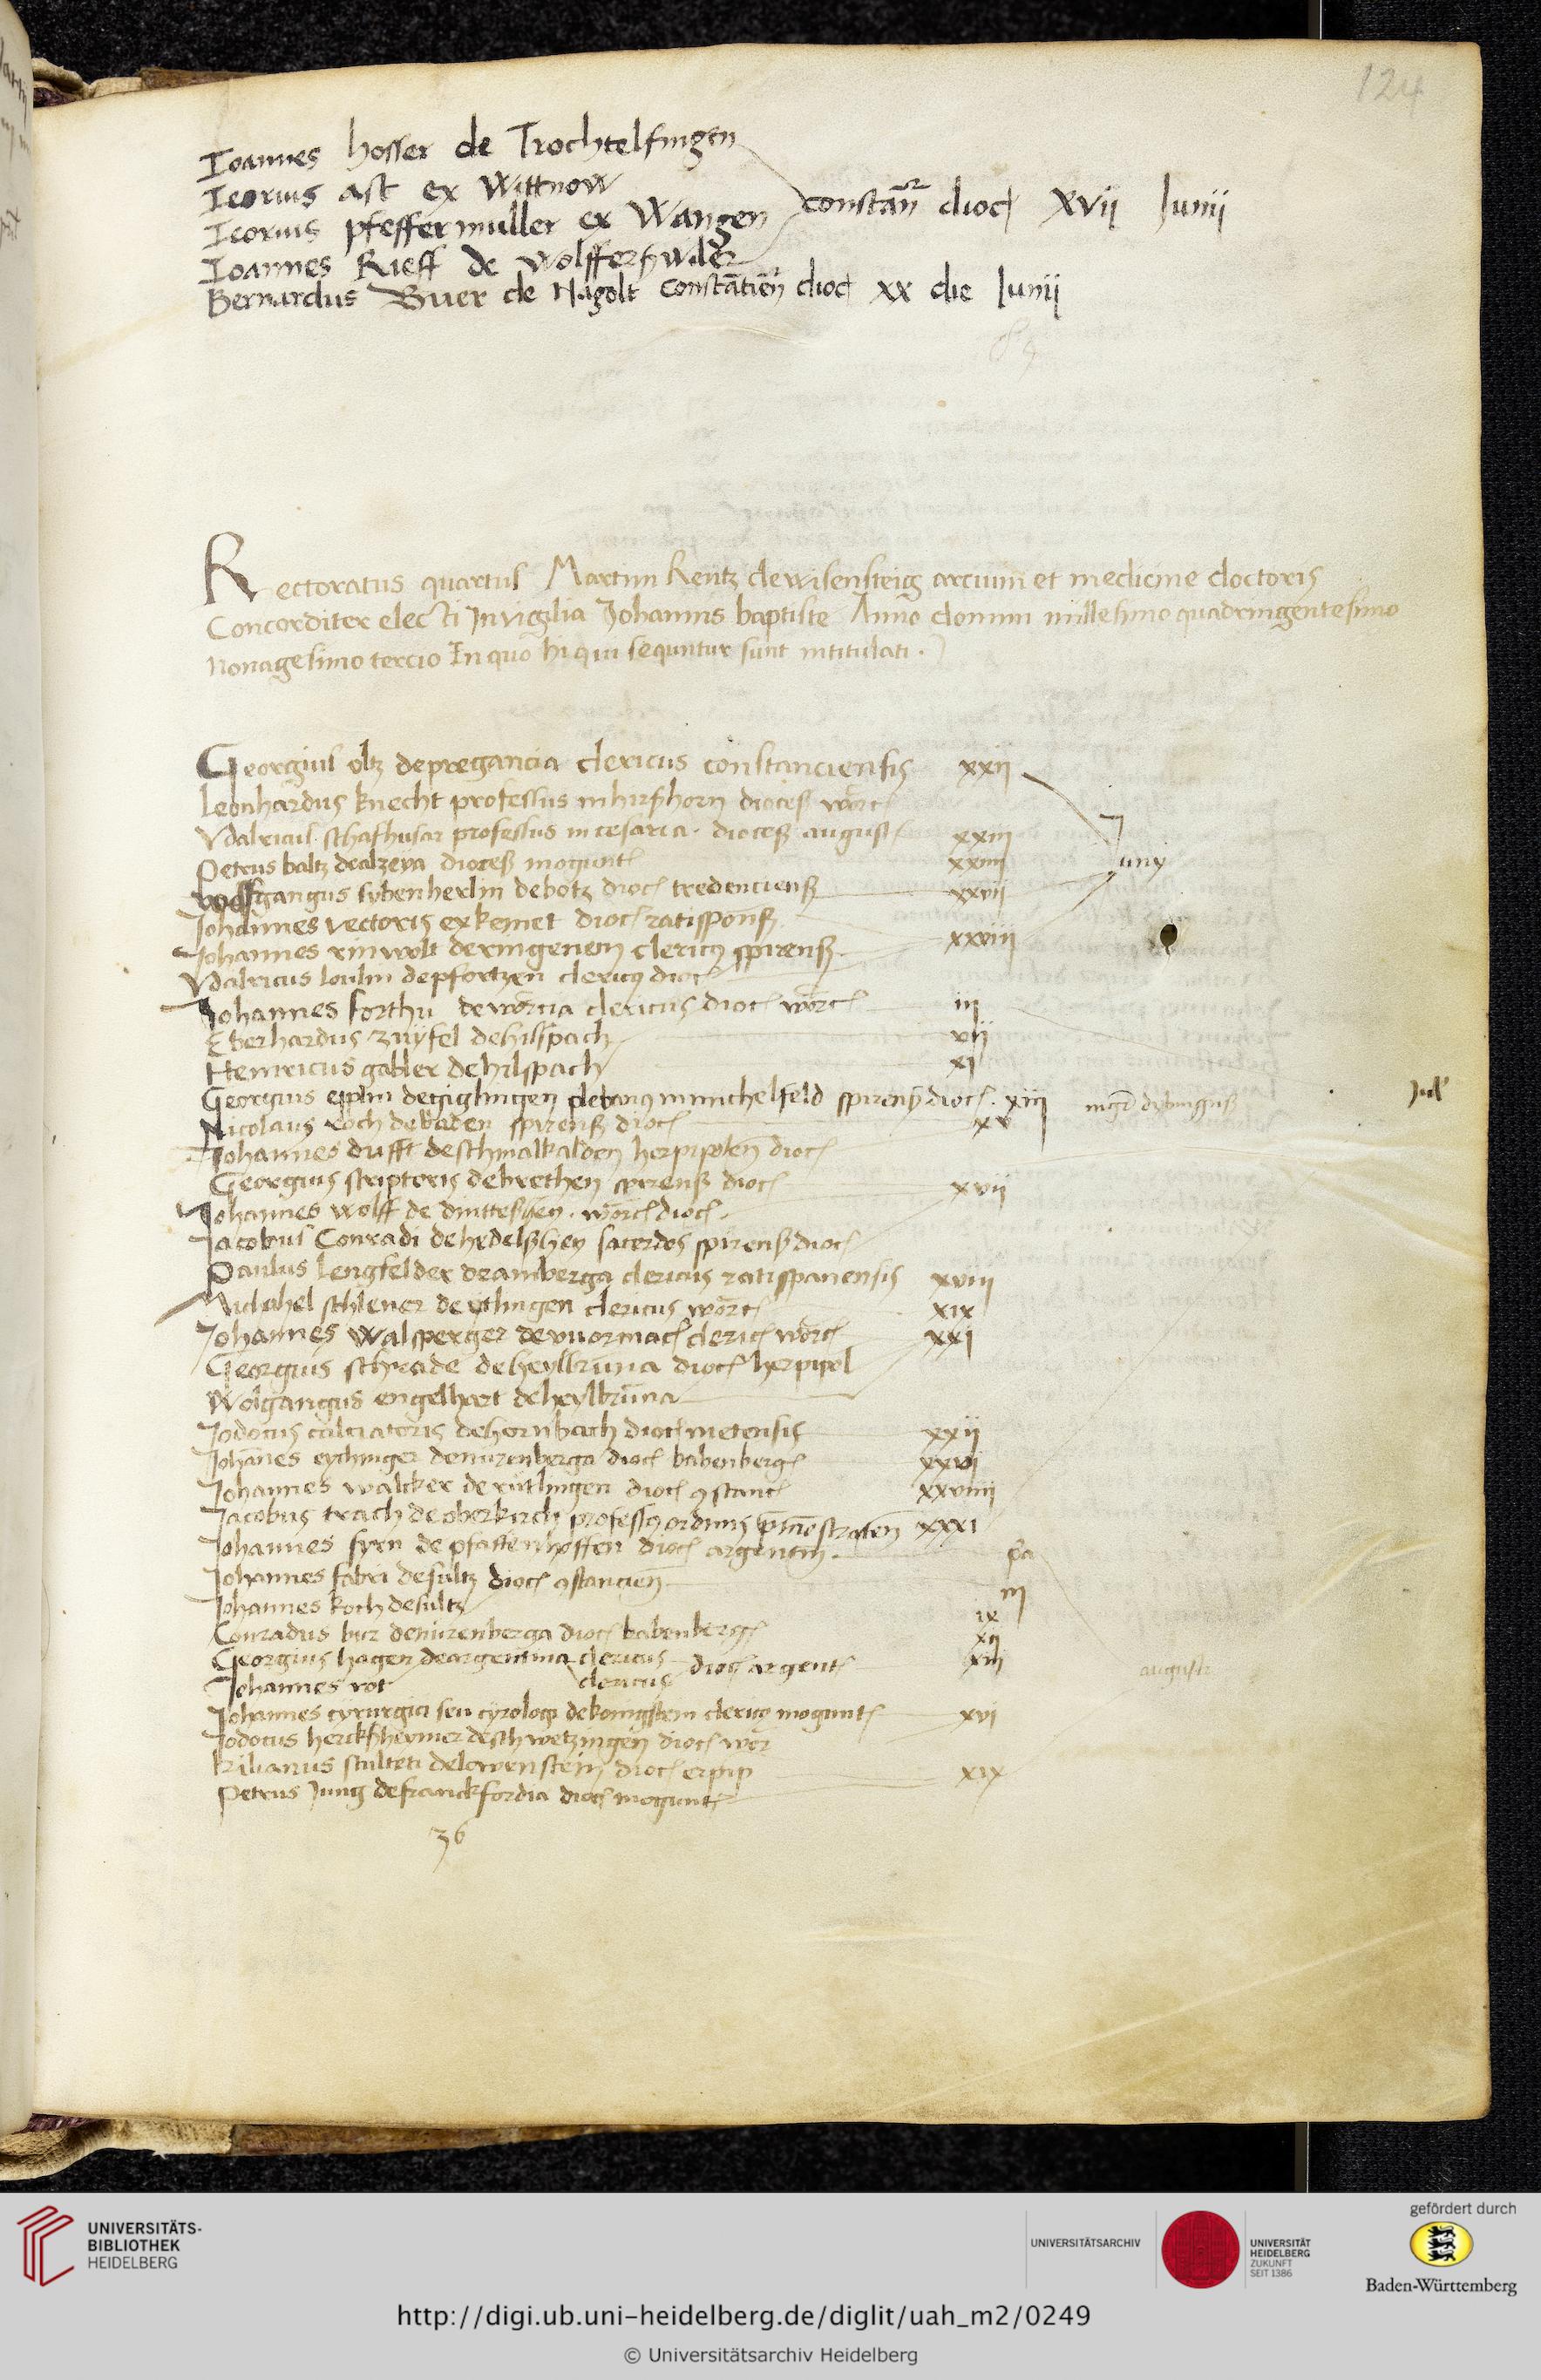 124
Ioannes hosser de Trochtelfingen
Ieorius ast ex Wittnow
constan̄ dioc xvii Junii
Ieorius pfeffermuller ex Wangen
Ioannes Rieff de Wolfferschwiler
Bernardus Buer de Nagolt constātien̄ dioc xx die Junii
Rectoratus quartus Martini Rentz de wisensteig arcium et medicine doctoris
Concorditer electi In vigilia Johannis baptiste Anno domini millesimo quadringentesimo
nonagesimo tercio In quo hi qui sequntur sunt intitulati .
Georgius oltz de pregancia clericus constanciensis xxii
Leonhardus knecht professus in hirshorn dioces worc
Udalricus schafhuser professus in cesaria dioces august xxiii
Petrus baltz de alzeya dioces mogunt xxiiii Juny
Wolfgangus sybenherlin de botz dioc tredenciens xxvii
Johannes vectoris ex kemet dioc ratispons
Johannes rinwolt de ringenem clericus spirens xxviii
Udalricus loulin de pfortzen clericus dioc
Johannes forthu de worcia clericus dioc worc iii
Eberhardus zuyfel de hilspach vii
Heinricus gabler de hilspach xi
Georgius epplin de giglingen plebanus in michelfeld spirens dioc xiii mgr dybinggens Jul
Nicolaus koch de baden spirens dioc xv
Johannes dufft de schmalkalden herpipolen dioc
Georgius scriptoris de brethen spirens dioc xvii
Johannes wolff de dintteshen worc dioc
Jacobus Conradi de hedelshen sacerdos spirens dioc
Paulus lengfelder de amberga clericus ratispanensis xviii
Michahel schlener de ytlingen clericus worc xix
Johannes walsperger de wormac cleric worc xxi
Georgius schrade de heylbruna dioc herpipol
Wolgangus engelhart de heylbruna
Jodocus calciatoris de hornbach dioc metensis xxii
Johānes eychinger de nurenberga dioc babenberg xxvi
Johannes walcker de rutlingen dioc 9stanc xxviiii
Jacobus trach de oberkirch professus ordinis premonstraten xxxi
Johannes syrn de pfaffenhoffen dioc argentin pa
Johannes fabri de sultz dioc 9stancien iii
Johannes koch de sultz
ix
Conradus bur de nurenberga dioc babenberg xii
Georgius hagen de argentina clericus dioc argent xiii august
Johannes rot clericus
Johannes cyrurgici seu cyrologi de konigstein clericus mogunt xvi
Jodocus hercksheymer de schwetzingen dioc wor
kilianus sculteti de lowenstein dioc erpip xix
Petrus Jung de franckfordia dioc mogunt
36
UNIVERSITÄTS-
BIBLIOTHEK
HEIDELBERG
UNIVERSITÄTSARCHIV
UNIVERSITÄT
HEIDELBERG
ZUKUNFT
SEIT 1386
gefördert durch
Baden-Württemberg
http://digi.ub.uni-heidelberg.de/diglit/uah_m2/0249
© Universitätsarchiv Heidelberg